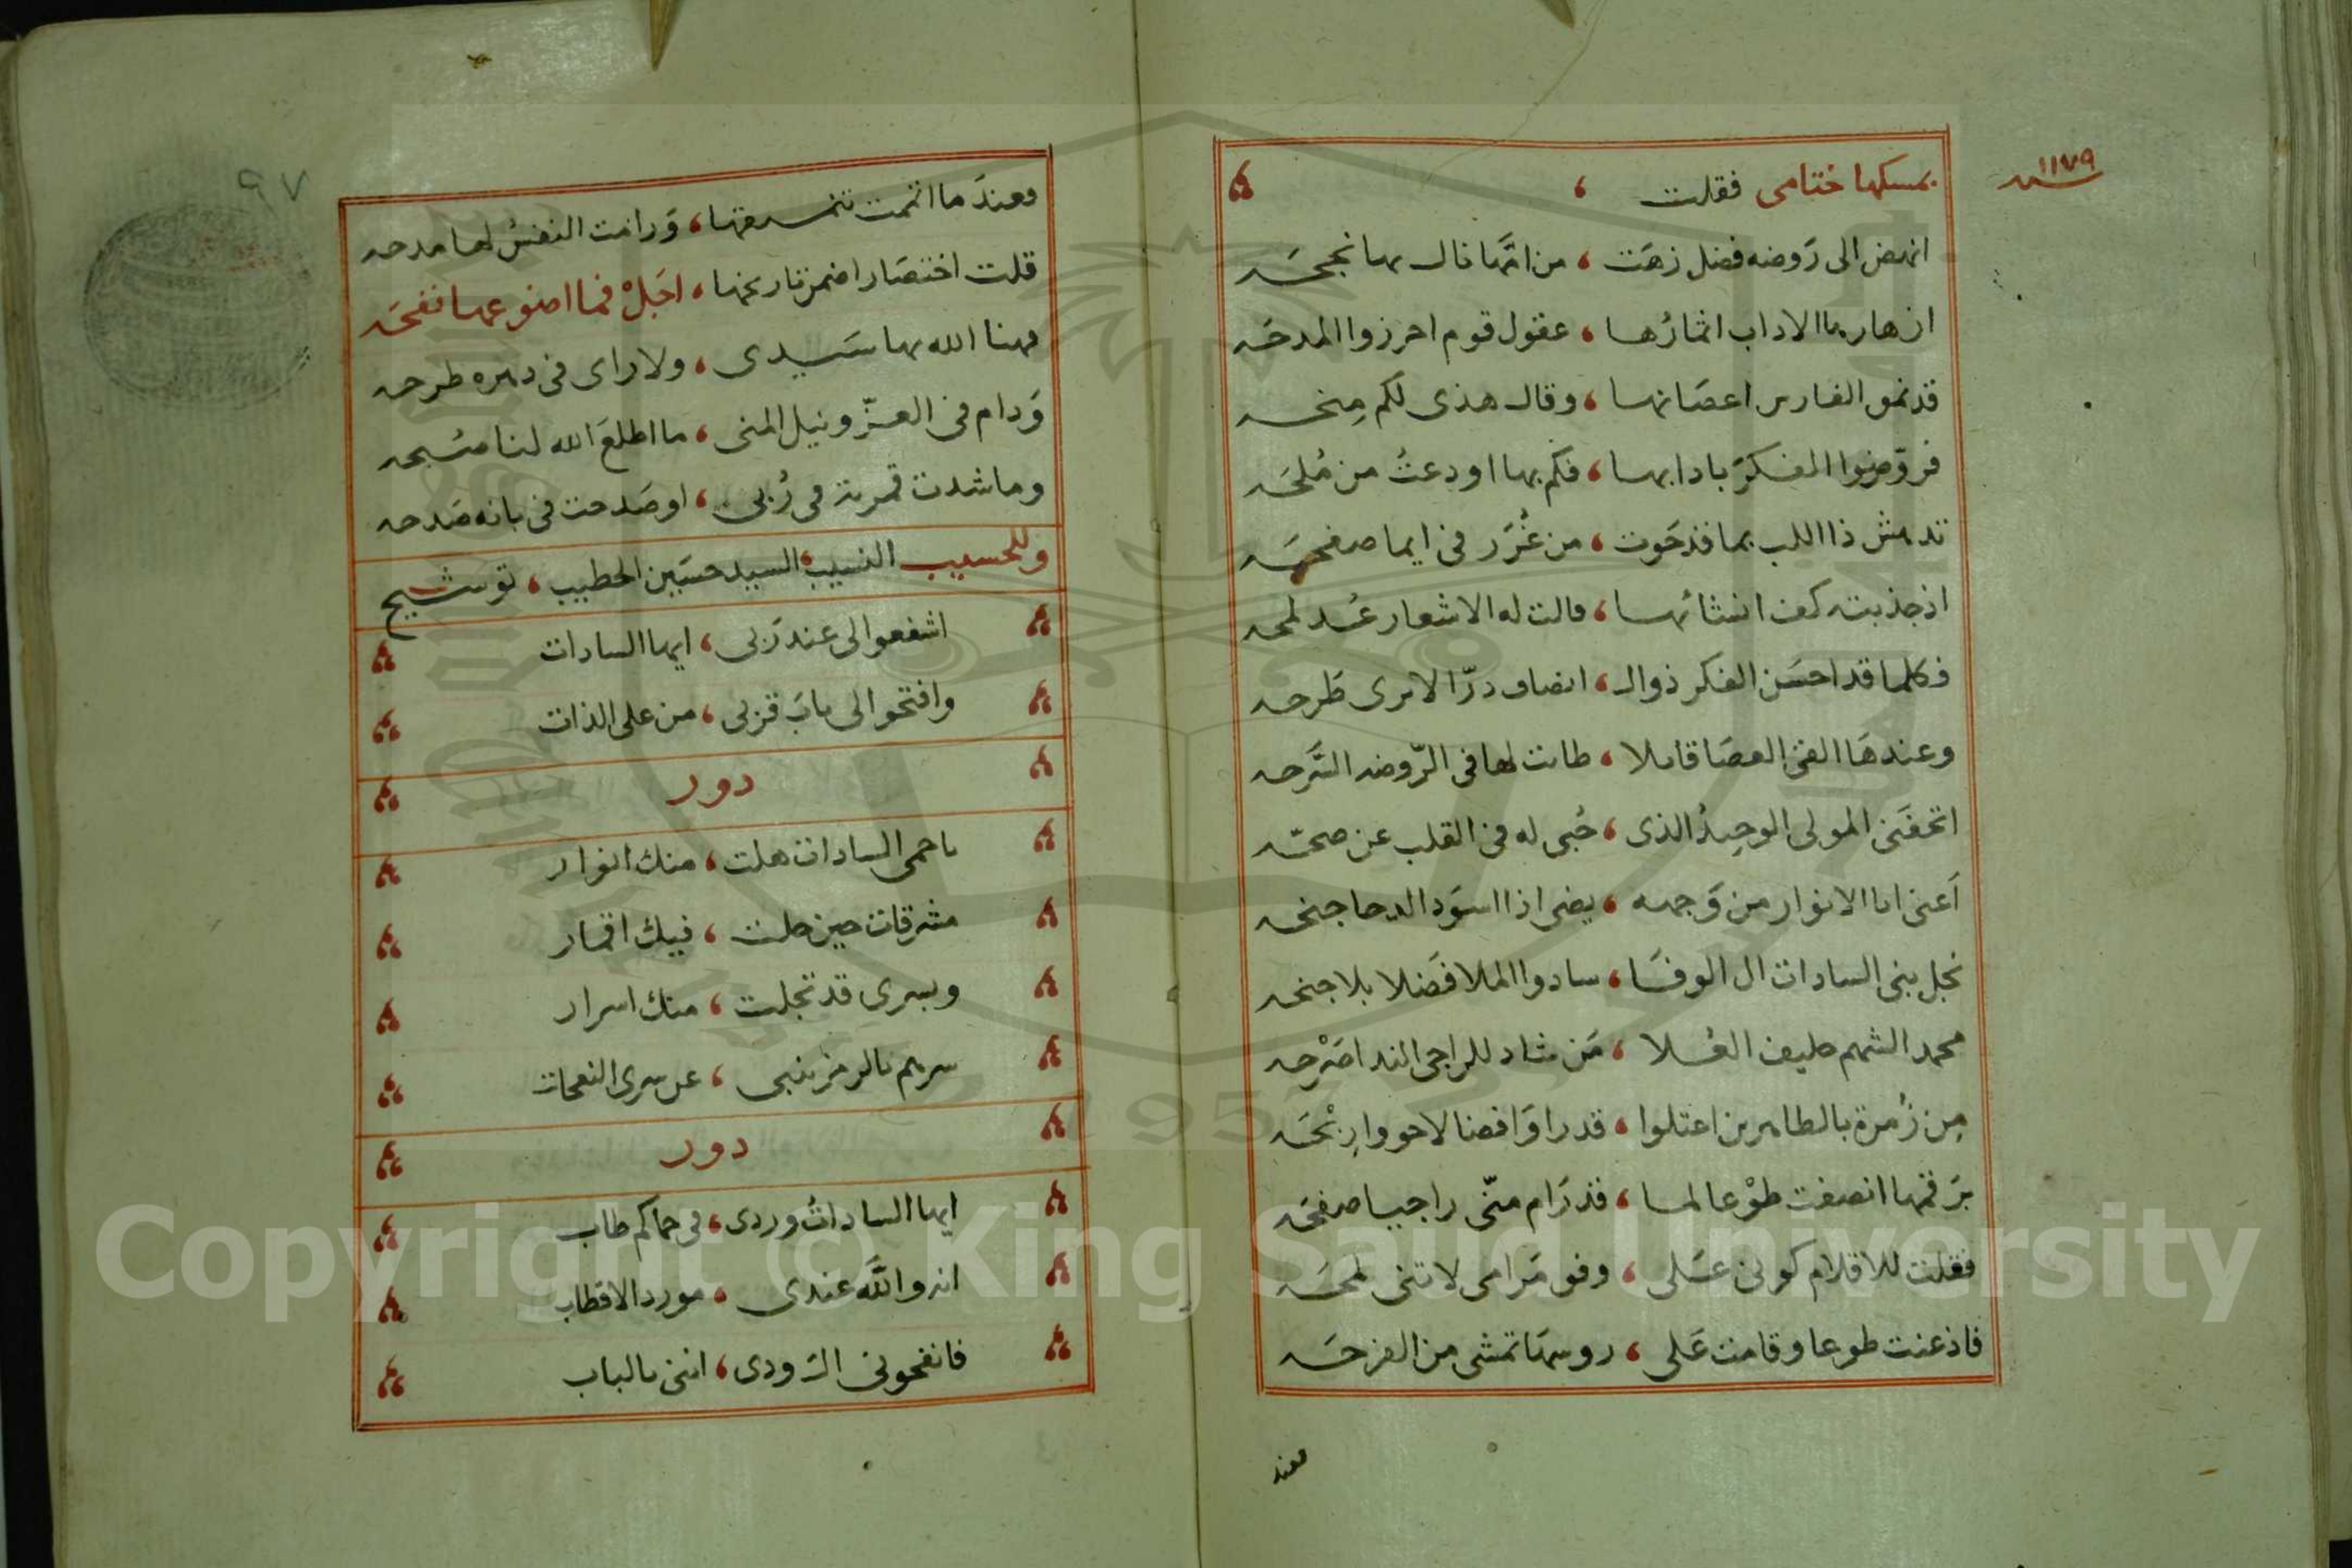 ١١٧٩ سنه
بمسكها ختامى فقلت ،
انهض الى رَوضه فضل زهَت ، من امَّها نال بها نجحَه
ازهارها الاداب اثمارُها ، عقول قوم احرزوا المدحَه
قد نمق الفارس اغصانها ، وقال هذى لكم مِنحه
فروّضوا الفكرَ بادابها ، فكم بها اودعتُ من مُلحَه
تدهش ذا اللب بما قد حَوت ، من غُرَر فى ايما صفحَه
اذ جذبته كف انشائها ، مالت له الاشعار عند لمحه
فكلما قد احسَن الفكر ذوالـ ، انصاف درّا لا يرى طَرحه
وعندهَا القى العصَا قايلا ، طابت لها فى الرّوضه السَّرحه
اتحفَنى المولى الوحِيدُ الذى ، حُبى له فى القلب عن صحّه
اَعنى ابا الانوار من وَجهه ، يضى اذا اسوَد الدجا جنحه
نجل بنى السادات ال الوفَا ، سادوا الملا فَضلا بلا جنحه
محمد الشهم حليف العُلا ، مَن شاد للراجى الندا صَرْحه
مِن زُمرة بالطاهرين اعتلوا ، قدرا وَافضالا حووا رِبْحَه
بَرَقمها انصفت طوْعا لما ، قد رَام منّى راجيا صفحَه
فقلت للاقلام كونى عَلى ، وفق مَرامى لا تنى لمحَه
فاذعنت طوعا وقامت عَلى ، روسهَا تمشى من الفرحَه
وعند
٩٧
وعندَ ما اتممت تنميقها ، وَرامت النفسُ لها مدحه
قلت اختصَارا ضمن تاريخها ، اجَلْ فما اضوع عها نفحَه
فهنا الله بها سَيدى ، ولا راى فى دهره طرحه
وَدام فى العزّ ونيل المنى ، ما اطلعَ الله لنا صُبحه
وما شدت قمرية فى رُبى ، او صَدحت فى بانه صَدحه
وللحسيب النسيب السيد حسَين الخطيب ، توشيح
اشفعوا لى عند رَبى ، ايها السادات
وافتحوا لى بابَ قربى ، من على الذات
دور
يا حمى السادات هلت ، منك انوار
مشرقات حين حلت ، فيك اقمار
وبسرى قد تجلت ، منك اسرار
سرهم بالرمز ينبى ، عن سرى النفحات
دور
ايها الساداتُ وردى ، فى حماكم طاب
انه واللَّه عندى ، مورد الاقطاب
فانفحونى الرَودى ، اننى بالباب
Copyright © King Saud University